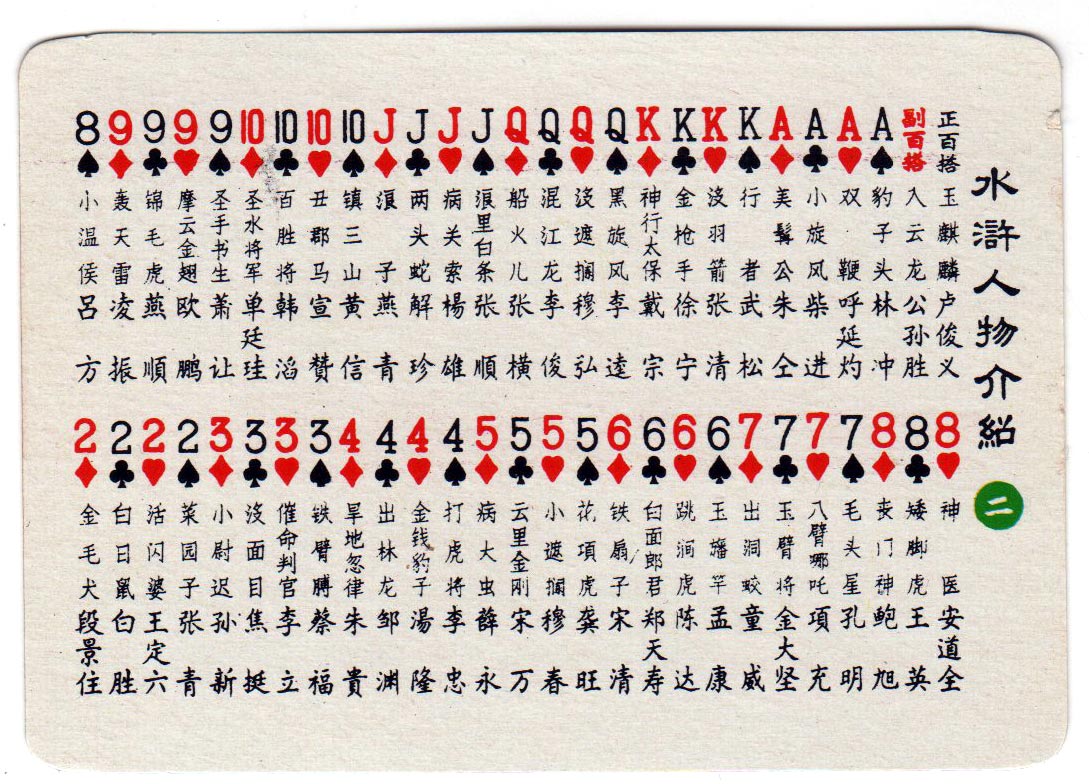 水滸人物介紹 二
正百搭 玉麒麟卢俊义
副百搭 入云龙公孙胜
A♠ 豹子头林冲
A♥ 双鞭呼延灼
A♣ 小旋风柴进
A♦ 美髯公朱仝
K♠ 行者武松
K♥ 没羽箭张清
K♣ 金枪手徐宁
K♦ 神行太保戴宗
Q♠ 黑旋风李逵
Q♥ 没遮搁穆弘
Q♣ 混江龙李俊
Q♦ 船火儿张横
J♠ 浪里白条张順
J♥ 病关索楊雄
J♣ 两头蛇解珍
J♦ 浪子燕青
10♠ 镇三山黄信
10♥ 丑郡马宣贊
10♣ 百胜将韩滔
10♦ 圣水将军单廷珪
9♠ 圣手书生萧让
9♥ 摩云金翅欧鹏
9♣ 锦毛虎燕順
9♦ 轰天雷凌振
8♠ 小温侯呂方
8♥ 神医安道全
8♣ 矮脚虎王英
8♦ 丧门神鲍旭
7♠ 毛头星孔明
7♥ 八臂哪吒項充
7♣ 玉臂将金大坚
7♦ 出洞蛟童威
6♠ 玉旛竿孟康
6♥ 跳涧虎陈达
6♣ 白面郎君郑天寿
6♦ 铁扇子宋清
5♠ 花項虎龚旺
5♥ 小遮搁穆春
5♣ 云里金刚宋万
5♦ 病大虫薛永
4♠ 打虎将李忠
4♥ 金钱豹子湯隆
4♣ 出林龙邹渊
4♦ 旱地忽律朱貴
3♠ 铁臂膊蔡福
3♥ 催命判官李立
3♣ 没面目焦挺
3♦ 小尉迟孙新
2♠ 菜园子张青
2♥ 活闪婆王定六
2♣ 白日鼠白胜
2♦ 金毛犬段景住